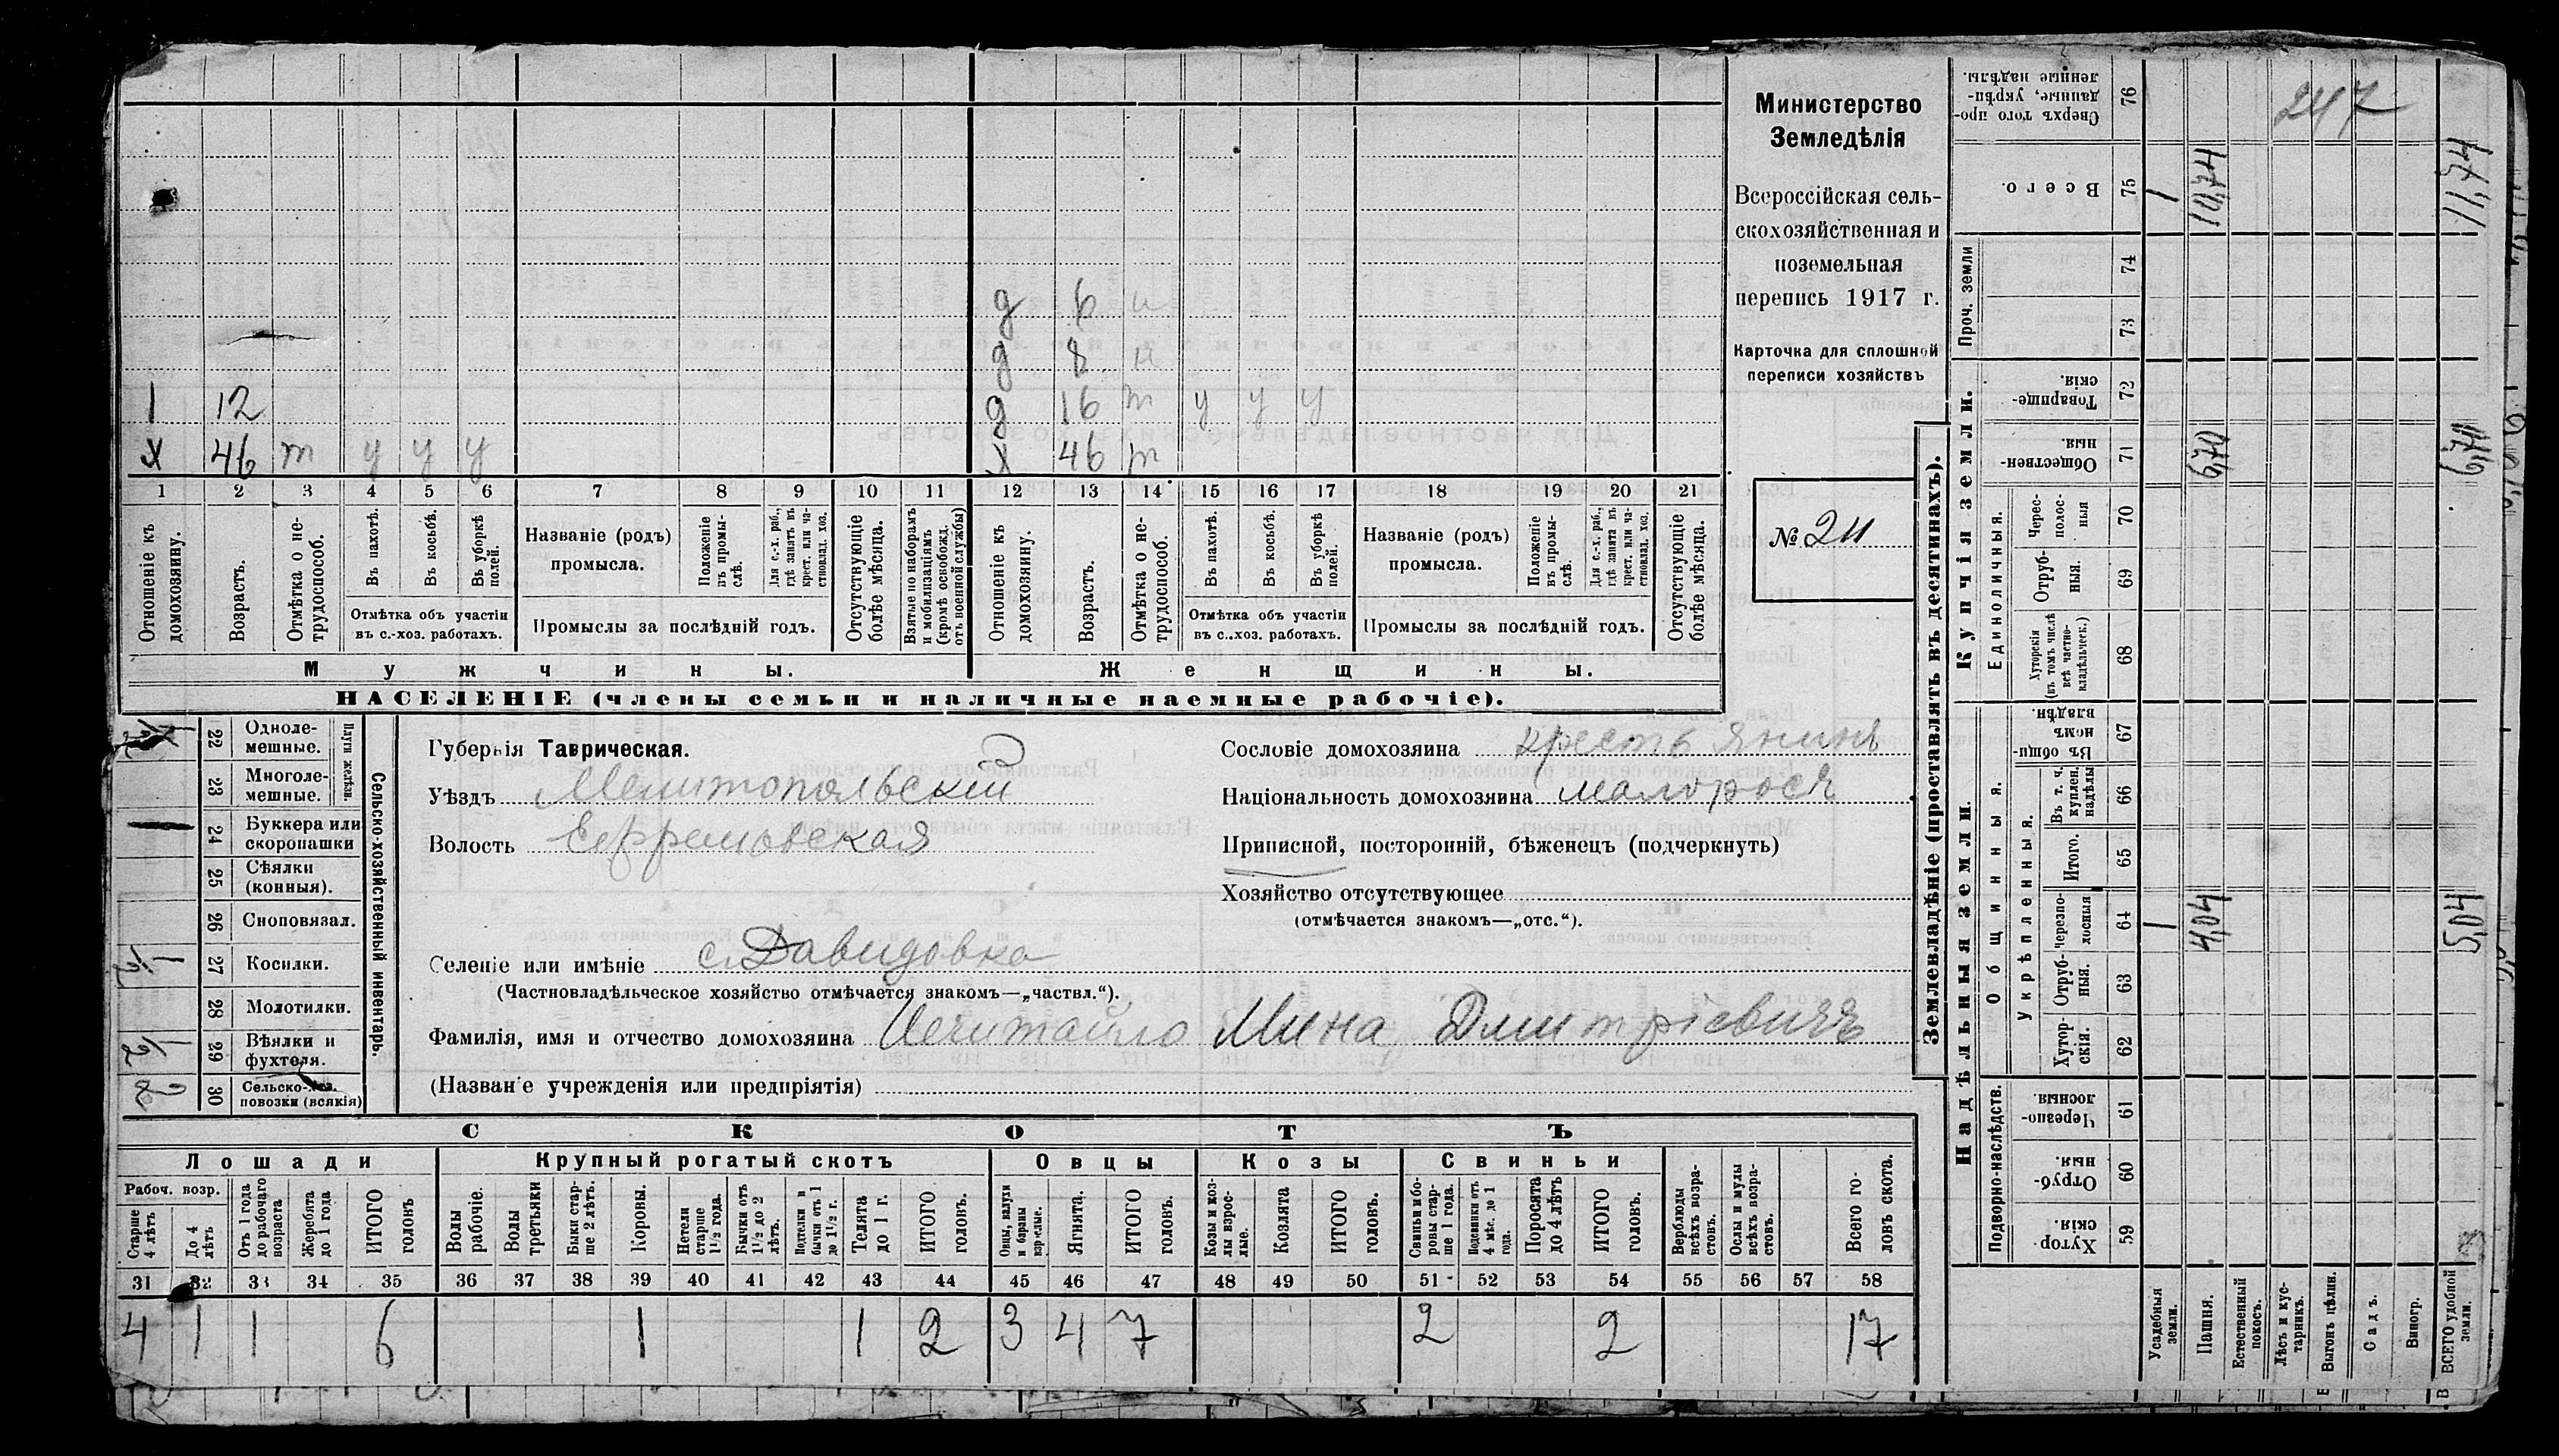 Министерство
Земледѣлія
Всероссійская сель-
скохозяйственная и
поземельная
перепись 1917 г.
Карточка для сплошной
переписи хозяйствъ
№ 211
д 6 н
д 8 н
1 12 д 16 т у у у
х 46 т у у у х 46 т
1 2 3 4 5 6 7 8 9 10 11 12 13 14 15 16 17 18 19 20 21
Отношеніе къ домохозяину.
Возрастъ.
Отмѣтка о не-трудоспособ.
Въ пахотѣ.
Въ косьбѣ.
Въ уборкѣ полей.
Отмѣтка объ участіи
въ с.-хоз. работахъ.
Названіе (родъ)
промысла.
Положеніе въ промы-слѣ.
Для с.-х. раб., гдѣ занятъ въ крест. или ча-стновлад. хоз.
Промыслы за послѣдній годъ.
Отсутствующіе болѣе мѣсяца.
Взятые по наборамъ и мобилизаціямъ (кромѣ освобожд. отъ военной службы)
Отношеніе къ домохозяину.
Возрастъ.
Отмѣтка о не-трудоспособ.
Въ пахотѣ.
Въ косьбѣ.
Въ уборкѣ полей.
Отмѣтка объ участіи
въ с.-хоз. работахъ.
Названіе (родъ)
промысла.
Положеніе въ промы-слѣ.
Для с.-х. раб., гдѣ занята въ крест. или ча-стновлад. хоз.
Промыслы за послѣдній годъ.
Отсутствующіе болѣе мѣсяца.
Мужчины. Женщины.
НАСЕЛЕНІЕ (члены семьи и наличные наемные рабочіе).
Сельско-хозяйственный инвентарь.
Плуги желѣзн.
22 Однолемешные.
23 Многолемешные.
24 Буккера или скоропашки 1
25 Сѣялки (конныя).
26 Сноповязал.
27 Косилки. 1/2
28 Молотилки.
29 Вѣялки и фухтеля. 1/2
30 Сельско-хоз. повозки (всякія) 2
Губернія Таврическая.
Уѣздъ Мелитопольскій
Волость Ефремовская
Селеніе или имѣніе с. Давидовка
(Частновладѣльческое хозяйство отмѣчается знакомъ—„частвл.“).
Фамилія, имя и отчество домохозяина Нечитайло Мина Дмитріевичъ
(Названіе учрежденія или предпріятія)
Сословіе домохозяина крестьянинъ
Національность домохозяина малороссъ
Приписной, посторонній, бѣженецъ (подчеркнуть)
Хозяйство отсутствующее
(отмѣчается знакомъ—„отс.“).
СКОТЪ
Лошади Крупный рогатый скотъ Овцы Козы Свиньи
Рабоч. возр.
Старше 4 лѣтъ
До 4 лѣтъ
Отъ 1 года до рабочаго возраста
Жеребята до 1 года
ИТОГО головъ
Волы рабочіе.
Волы третьяки
Быки стар-ше 2 лѣтъ.
Коровы.
Нетели старше 1½ года.
Бычки отъ 1½ до 2 лѣтъ.
Подтелки и бычки отъ 1 до 1½ г.
Телята до 1 г.
ИТОГО головъ.
Овцы, валухи и бараны взрослые.
Ягнята.
ИТОГО головъ.
Козы и коз-лы взрос-лые.
Козлята
ИТОГО головъ.
Свиньи и бо-ровы стар-ше 1 года.
Подсвинки отъ 4 мѣс. до 1 года.
Поросята до 4 лѣтъ
ИТОГО головъ.
Верблюды всѣхъ возра-стовъ.
Ослы и мулы всѣхъ возра-стовъ.
Всего го-ловъ скота.
31 32 33 34 35 36 37 38 39 40 41 42 43 44 45 46 47 48 49 50 51 52 53 54 55 56 57 58
4 1 1 6 1 1 2 3 4 7 2 2 17
Землевладѣніе (проставлять въ десятинахъ).
Надѣльныя земли. Купчія земли.
Подворно-наслѣдств.
Общинныя.
Укрѣпленныя.
Единоличныя.
Проч. земли
Сверхъ того про-данные, укрѣп-ленные надѣлы. 76 247
Всего. 75 1 10,74 11,74
74
73
Товарище-скія. 72
Обществен-ныя 71 6,70 6,70
Черес-полос-ныя 70
Отруб-ныя. 69
Хуторскія (въ томъ числѣ всѣ частно-владѣльческ.) 68
Въ общин-номъ владѣн. 67
Въ т. ч. куплен. надѣлы 66
Итого. 65
Черезпо-лосныя 64 1 4,04 5,04
Отруб-ныя. 63
Хутор-скія. 62
Черезпо-лосныя. 61
Отруб-ныя. 60
Хутор-скія. 59
Усадебныя земли.
Пашня.
Естественный покосъ.
Лѣсъ и кус-тарникъ.
Выгонъ цѣлин.
Садъ.
Виногр.
ВСЕГО удобной земли.